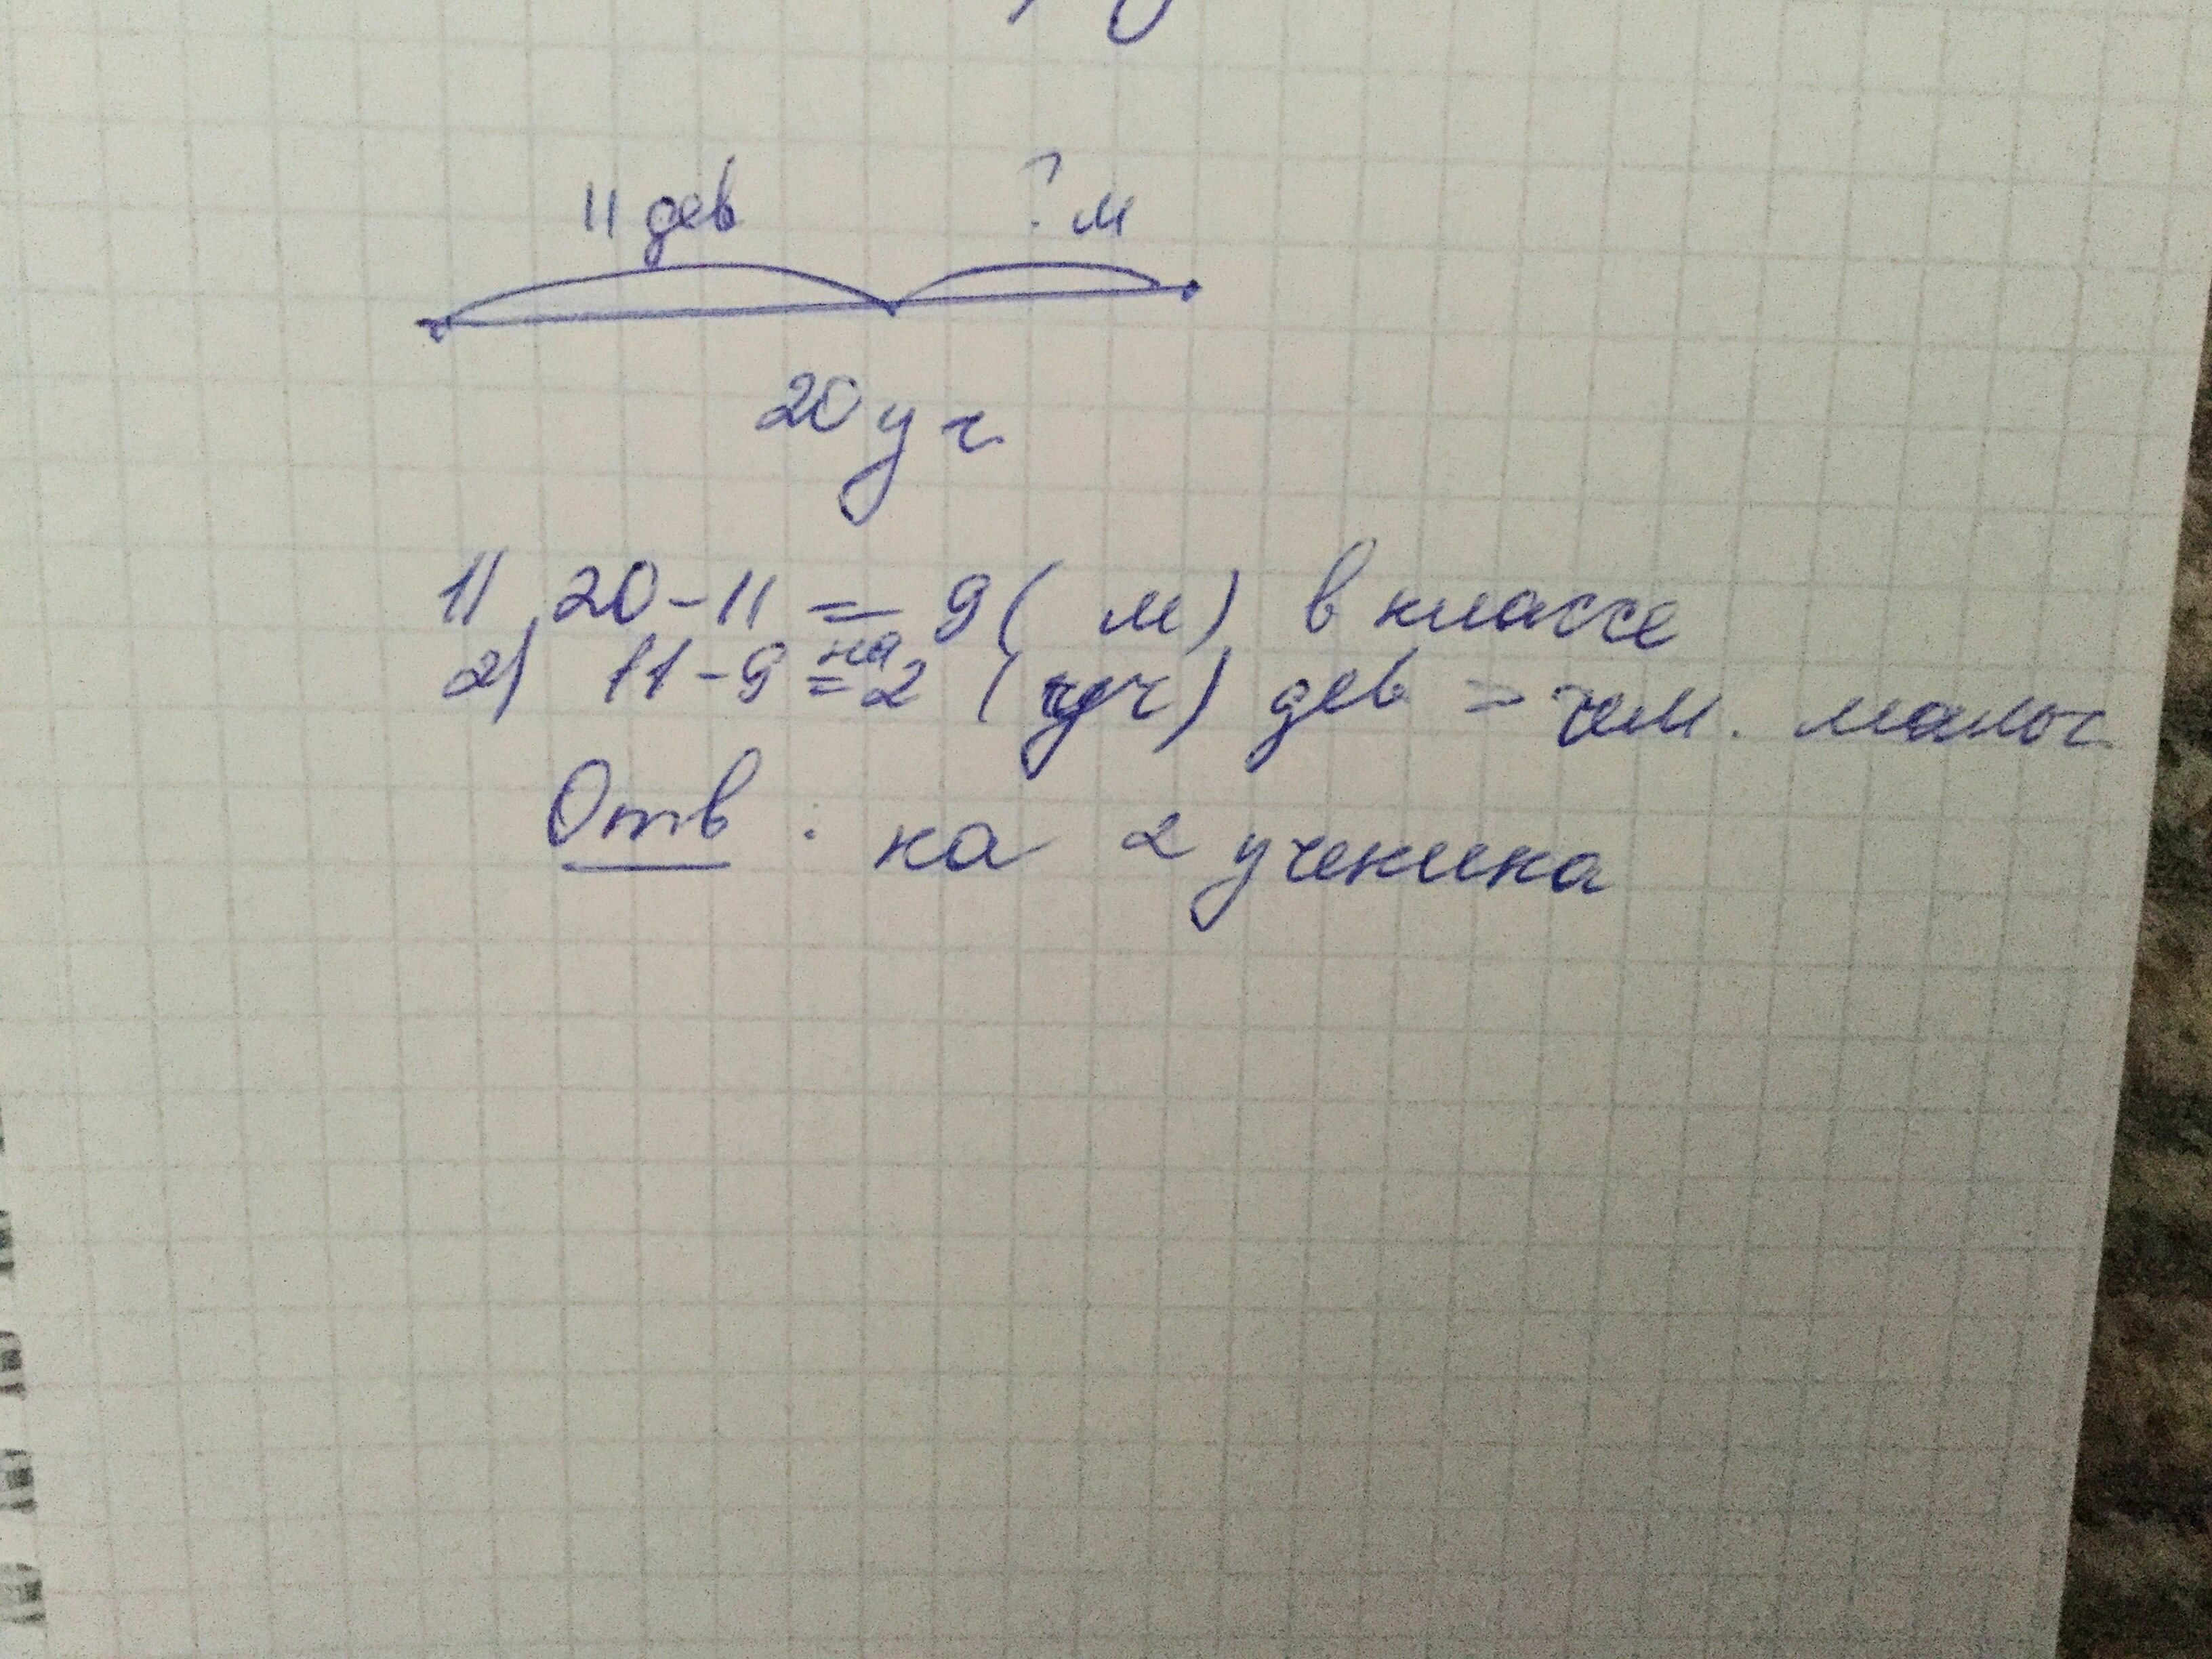 11 дев ? м
20 уч
1) 20-11 = 9 ( м) в классе
2) 11-9 = на 2 ( уч) дев > чем. мальч.
Отв : на 2 ученика